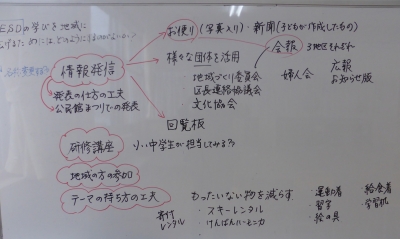 ESDの学びを地域に
お便り(写真入り)・新聞(子どもが作成したもの)
様々な団体を活用
会報 3地区それぞれ
情報発信
・地域づくり委員会
・区長連絡協議会
・文化協会
婦人会
広報
お知らせ版
発表の仕方の工夫
公民館まつりでの発表
回覧板
研修講座 小・中学生が担当してみる??
地域の方の参加
テーマの持ち方の工夫
もったいない物を減らす
寄付
レンタル
・スキーレンタル
・けんばんハーモニカ
・運動着
・習字
・絵の具
給食着
学習机